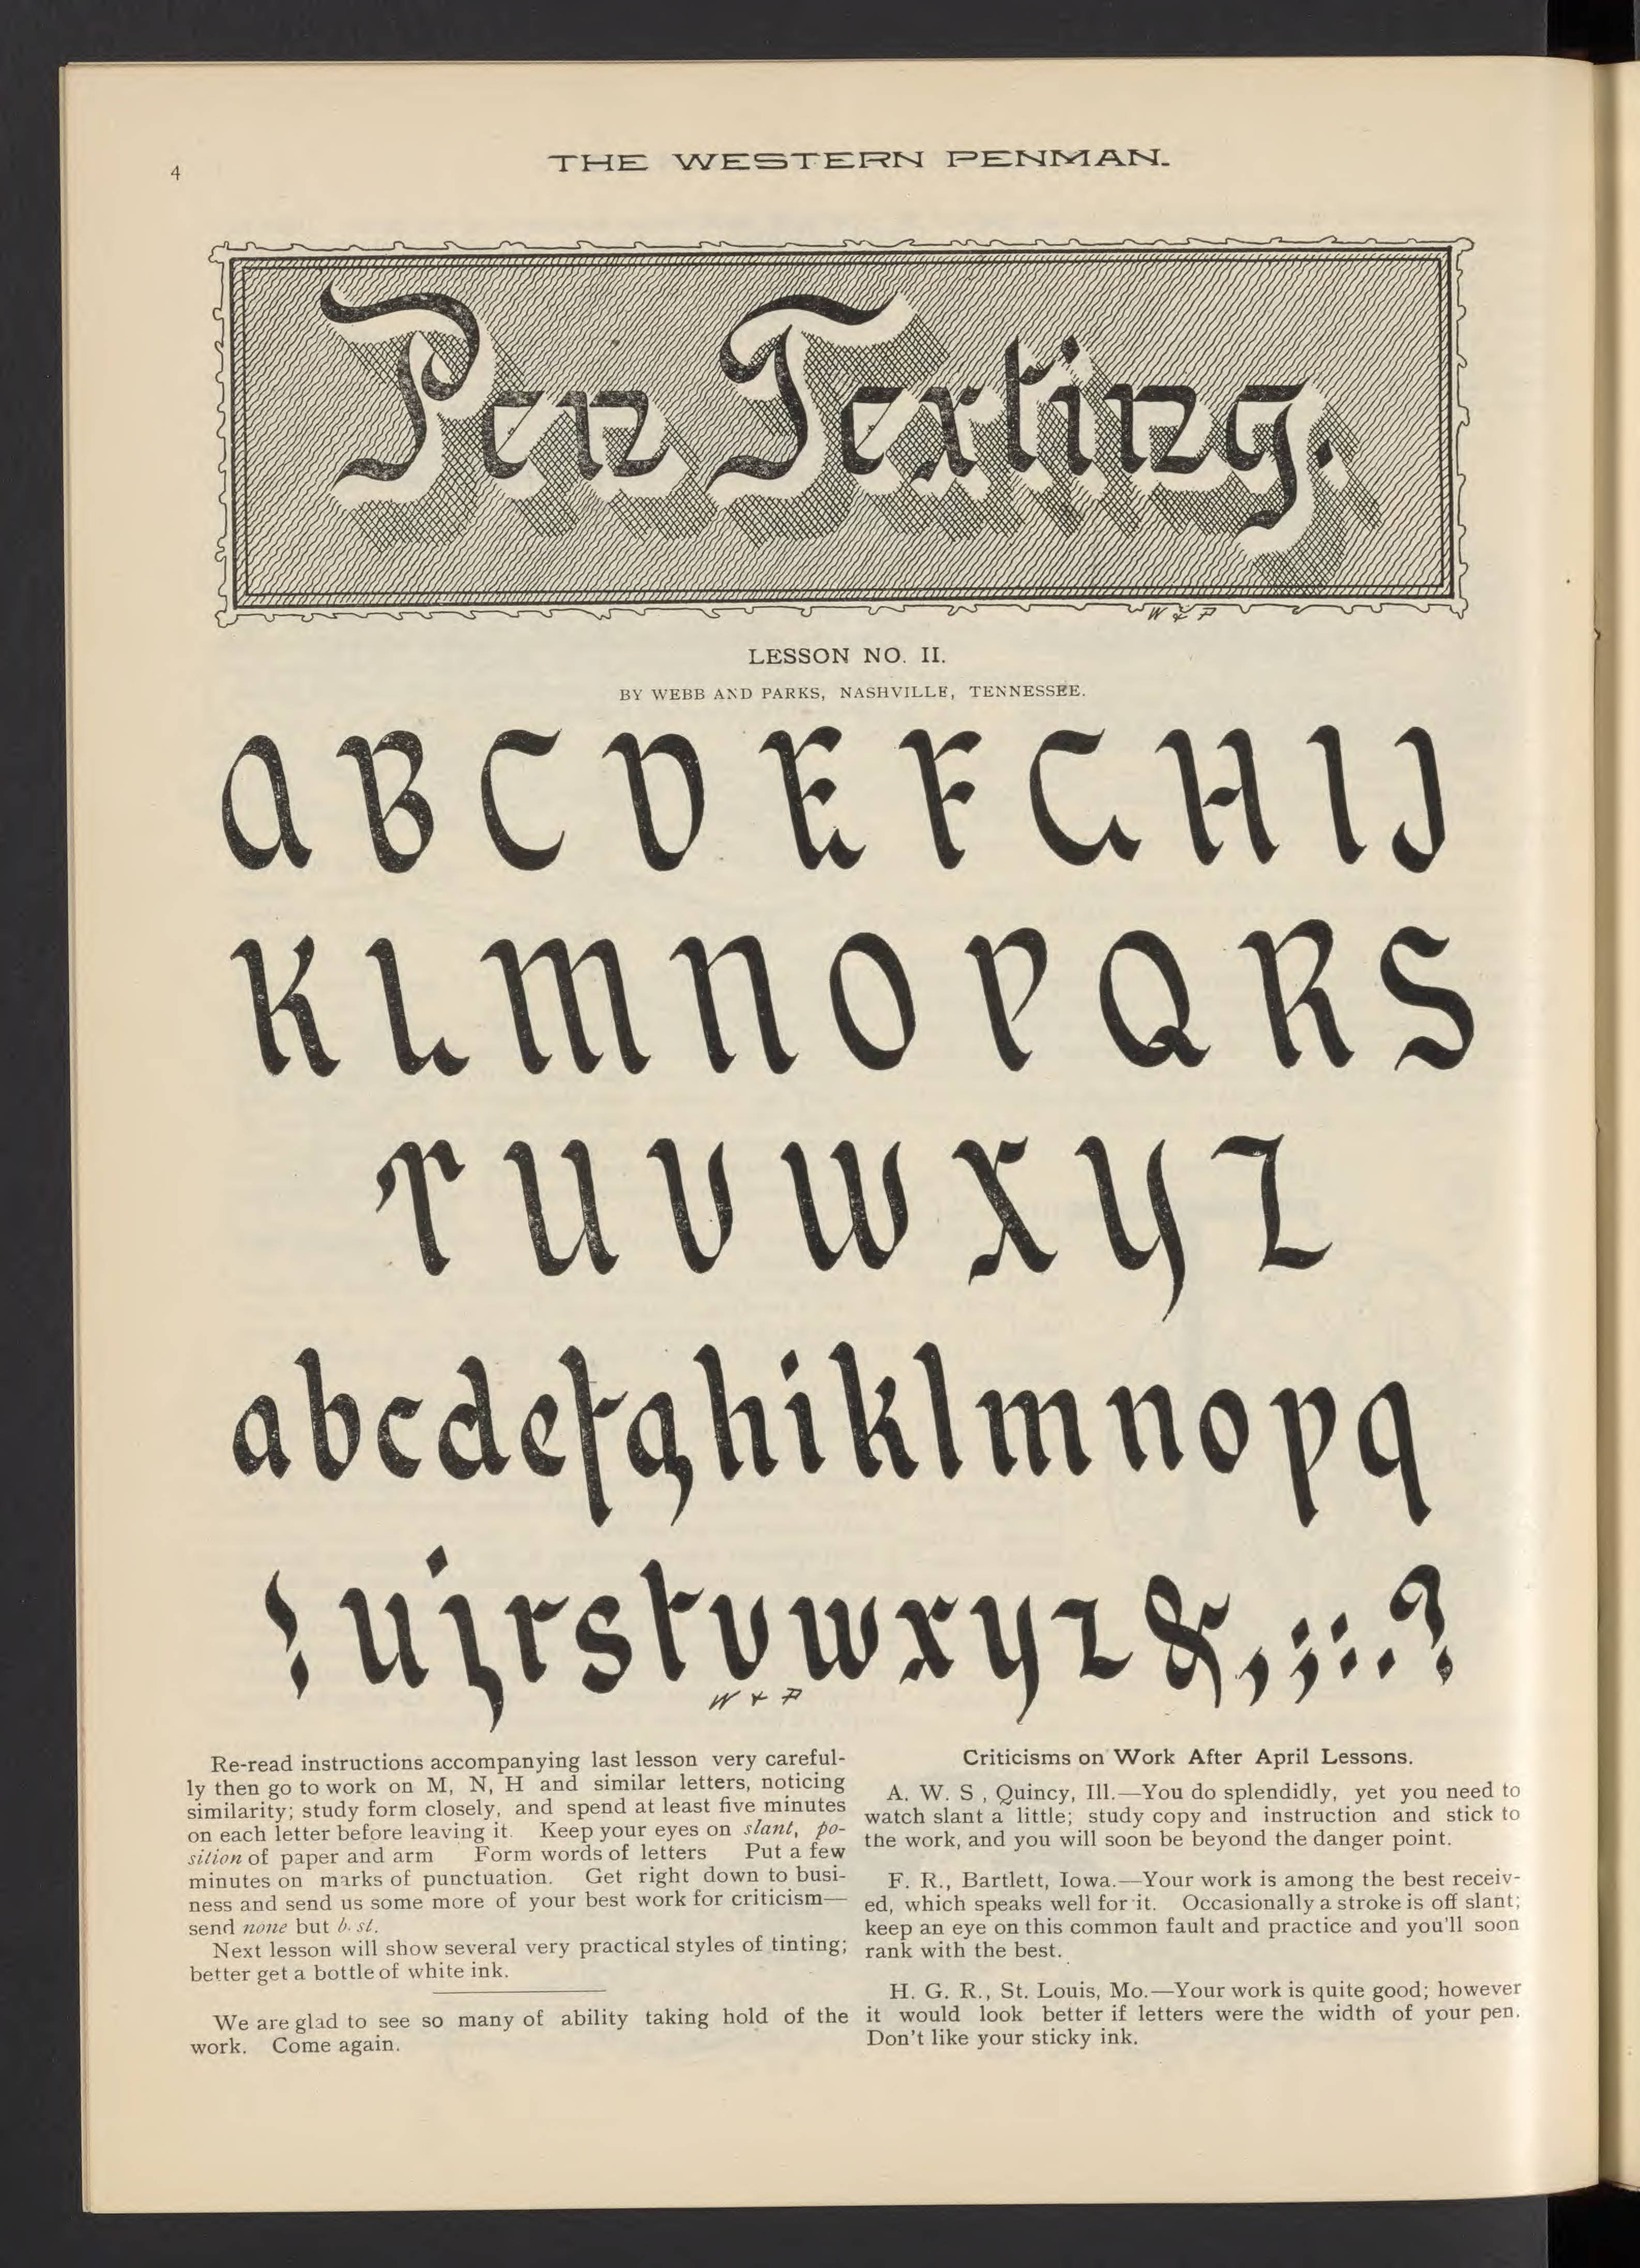 4
THE WESTERN PENMAN.
Pen Texting.
W & P
LESSON NO. II.
BY WEBB AND PARKS, NASHVILLE, TENNESSEE.
A B C D E F G H I J
K L M N O P Q R S
T U V W X Y Z
a b c d e f g h i k l m n o p q
! u j r s t v w x y z & , ; : . ?
W & P
Re-read instructions accompanying last lesson very careful-
ly then go to work on M, N, H and similar letters, noticing
similarity; study form closely, and spend at least five minutes
on each letter before leaving it. Keep your eyes on slant, po-
sition of paper and arm Form words of letters Put a few
minutes on marks of punctuation. Get right down to busi-
ness and send us some more of your best work for criticism—
send none but b. st.
Next lesson will show several very practical styles of tinting;
better get a bottle of white ink.
We are glad to see so many of ability taking hold of the
work. Come again.
Criticisms on Work After April Lessons.
A. W. S , Quincy, Ill.—You do splendidly, yet you need to
watch slant a little; study copy and instruction and stick to
the work, and you will soon be beyond the danger point.
F. R., Bartlett, Iowa.—Your work is among the best receiv-
ed, which speaks well for it. Occasionally a stroke is off slant;
keep an eye on this common fault and practice and you'll soon
rank with the best.
H. G. R., St. Louis, Mo.—Your work is quite good; however
it would look better if letters were the width of your pen.
Don't like your sticky ink.